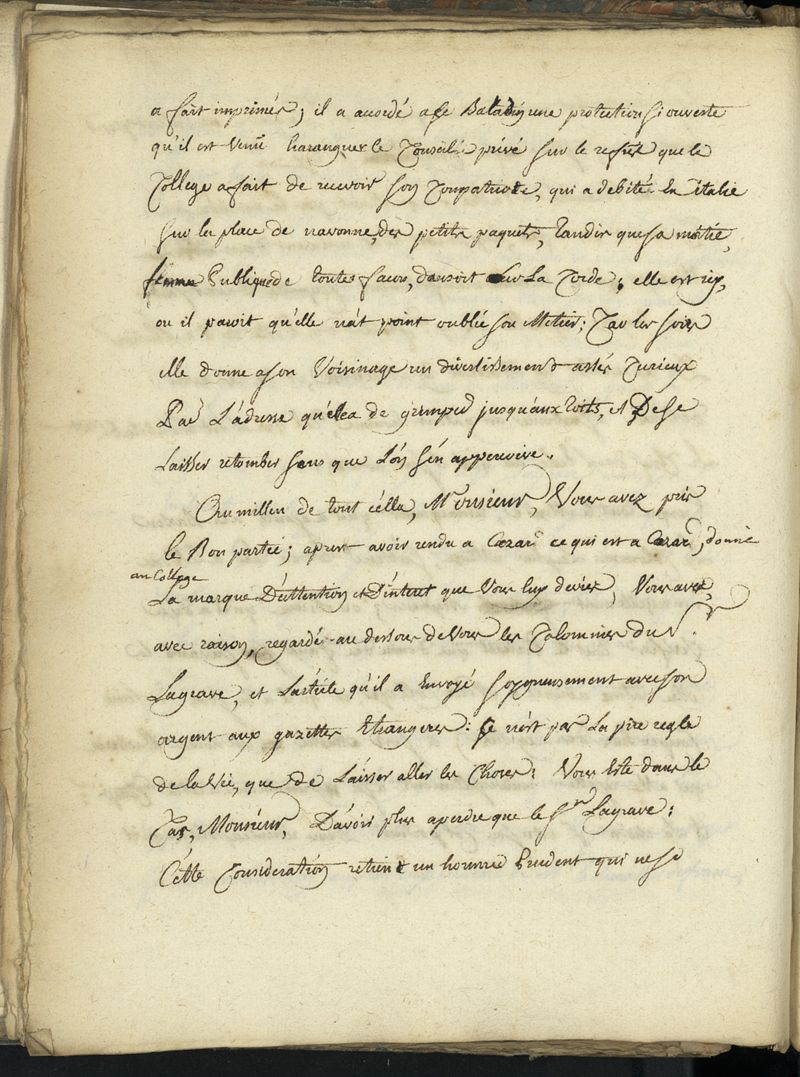 a fait imprimés; il a accordé a ce Baladin une protection si ouverte
qu'il est venu haranguer le Conseil privé sur le refus que le
College a fait de recevoir son Compatriote, qui a debité en italie
sur la place de navonne, des petits paquets, tandis que sa moitié,
femme Publique de toutes facons, dansoit sur La Corde; elle est icy,
ou il paroit qu'elle n'at point oublié son Metier; Car les soirs
elle donne a son Voisinage un divertissement assés Curieux
Par L'adresse qu'elea de grimper jusqu'aux toits, et De se
Laisser retomber sans que L'on s'en apperçoive.
Au millieu de tout cella, Monsieur, Vous avez pris
le Bon partie; apres avoir rendu a Cezar ce qui est a Cezar, donné
au College
La marque D'attention et D'interet que Vous luy deviés, Vous avez,
avec raison, regardé au dessous de Vous les Calomnies du Sr.
Lagrave, et L'article qu'il a Envoyé soygneusement avec son
argent aux gazettes Etrangeres: Ce n'est pas La pire regle
de la Vie, que de Laisser aller les Choses; Vous Esté dans le
Cas, Monsieur, D'avoir plus a perdre que le Sr Lagrave;
Cette Consideration retient un homme Prudent qui ne se